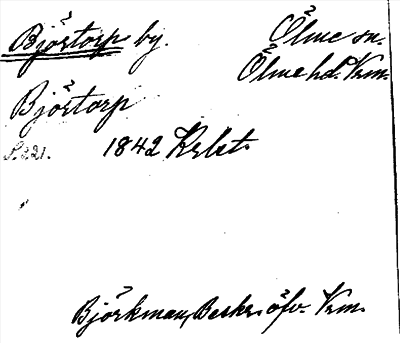 Björtorp by. Ölme sn.
Ölme hd. Vrm.
Björtorp
S. 221. 1842 Krkt.
Björkman, Beskr. öfv. Vrm.